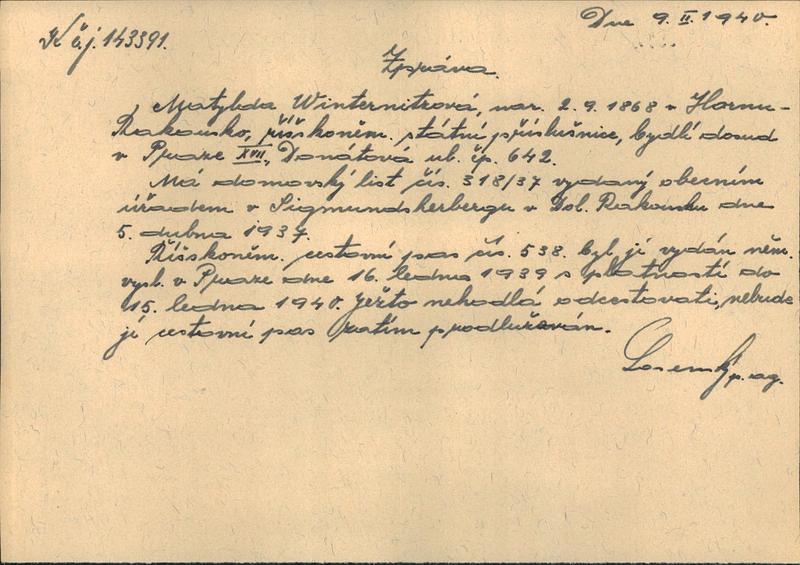 K č.j. 143391.
Dne 9.II.1940.
Zpráva.
Matylda Winternitzová, nar. 2.9.1868 v Horn-
Rakousko, říškoněm. státní příslušnice, bydlí dosud
v Praze XVII, Donátová ul. čp. 642.
Má domovský list čís. 318/37 vydaný obecním
úřadem v Sigmundsherbergu v Dol. Rakousku dne
5. dubna 1937.
Říškoněm. cestovní pas čís. 538. byl jí vydán něm.
vysl. v Praze dne 16. ledna 1939 s platností do
15. ledna 1940. Ježto nehodlá odcestovati, nebude
jí cestovní pas zatím prodlužován.
p. ag.